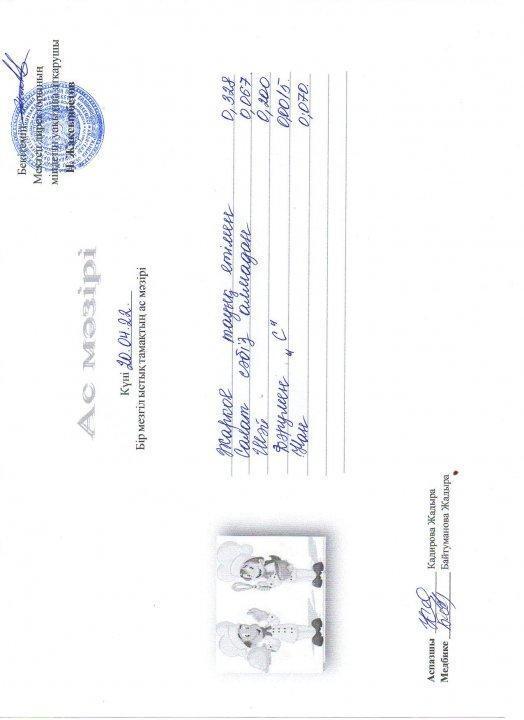 Бекітемін
Мектеп директорының
міндетін уақытша атқарушы
Н. Жақсыбетов
Ас мәзірі
Күні 20.04.22.
Бір мезгіл ыстық тамақтың ас мәзірі
Жаркое тауық етімен 0,328
Салат сәбіз алмадан 0,067
Шәй 0,200
Дәрумен "С" 0,0015
Нан 0,070
Аспазшы Кадирова Жадыра
Медбике Байтуманова Жадыра